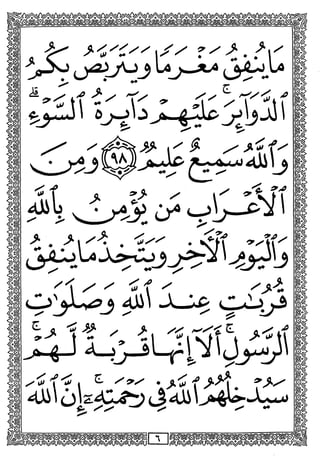 مَا يُنفِقُ مَغْرَمًا وَيَتَرَبَّصُ بِكُمُ
ٱلدَّوَآئِرَ ۚ عَلَيْهِمْ دَآئِرَةُ ٱلسَّوْءِ ۗ
وَٱللَّهُ سَمِيعٌ عَلِيمٌ ٩٨ وَمِنَ
ٱلْأَعْرَابِ مَن يُؤْمِنُ بِٱللَّهِ
وَٱلْيَوْمِ ٱلْأَخِرِ وَيَتَّخِذُ مَا يُنفِقُ
قُرُبَـٰتٍ عِندَ ٱللَّهِ وَصَلَوَٰتِ
ٱلرَّسُولِ ۚ أَلَآ إِنَّهَا قُرْبَةٌ لَّهُمْ ۚ
سَيُدْخِلُهُمُ ٱللَّهُ فِى رَحْمَتِهِۦٓ ۚ إِنَّ ٱللَّهَ
٦